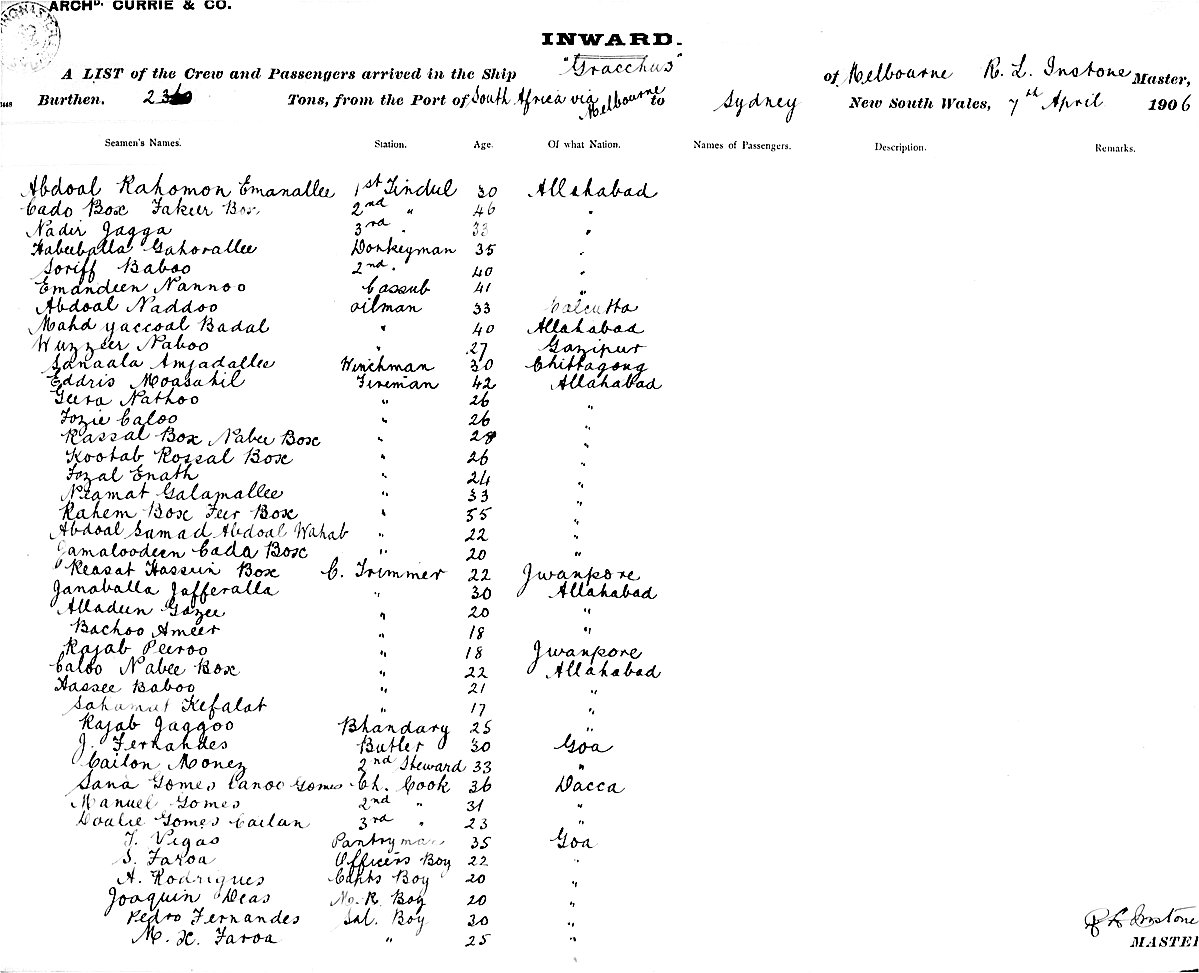 ARCHD. CURRIE & CO.
INWARD.
A LIST of the Crew and Passengers arrived in the Ship "Gracchus" of Melbourne R. L. Instone Master,
Burthen, Tons, from the Port of South Africa via Melbourne to Sydney New South Wales, 7th April 1906
Seamen's Names. Station. Age. Of what Nation. Names of Passengers. Description. Remarks.
Abdoal Rahomon Emanallee 1st Tindul 30 Allahabad
Cado Box Fakeer Box 2nd " 46 "
Nadir Jagga 3rd " 33 "
Habeeballa Gahorallee Donkeyman 35 "
Soriff Baboo 2nd " 40 "
Emandeen Nannoo Cassub 41 "
Abdoal Naddoo oilman 33 Calcutta
Mahd yaccoal Badal " 40 Allahabad
Wuzzeer Naboo " 27 Gazipur
Sanaala Amjadallee Winchman 30 Chittagong
Eddris Moasahil Fireman 42 Allahabad
Geera Nathoo " 26 "
Fozie Caloo " 26 "
Rassal Box Nabee Box " 28 "
Kootab Rossal Box " 26 "
Fozal Enath " 24 "
Niamat Galamallee " 33 "
Rahem Box Feer Box " 35 "
Abdoal Samad Abdoal Wahab " 22 "
Jamaloodeen Cada Box " 20 "
Reasat Hassein Box C. Trimmer 22 Jwanpore
Janaballa Jafferalla " 30 Allahabad
Alladeen Gazee " 20 "
Bachoo Ameer " 18 "
Rajab Peeroo " 18 Jwanpore
Caloo Nabee Box " 22 Allahabad
Hassee Baboo " 21 "
Sahamut Kefalat " 17 "
Rajab Jaggoo Bhandary 25 "
J. Fernandes Butler 30 Goa
Caiton Monez 2nd Steward 33 "
Sana Gomes Canoo Gomes Ch. Cook 36 Dacca
Manuel Gomes 2nd " 31 "
Doalie Gomes Cailan 3rd " 23 "
J. Vigas Pantryman 35 Goa
S. Faroa Officers Boy 22 "
A. Rodrigues Capts Boy 20 "
Joaquin Deas M. R. Boy 20 "
Pedro Fernandes Sal. Boy 30 "
M. X. Faroa " 25 "
R L Instone
MASTER